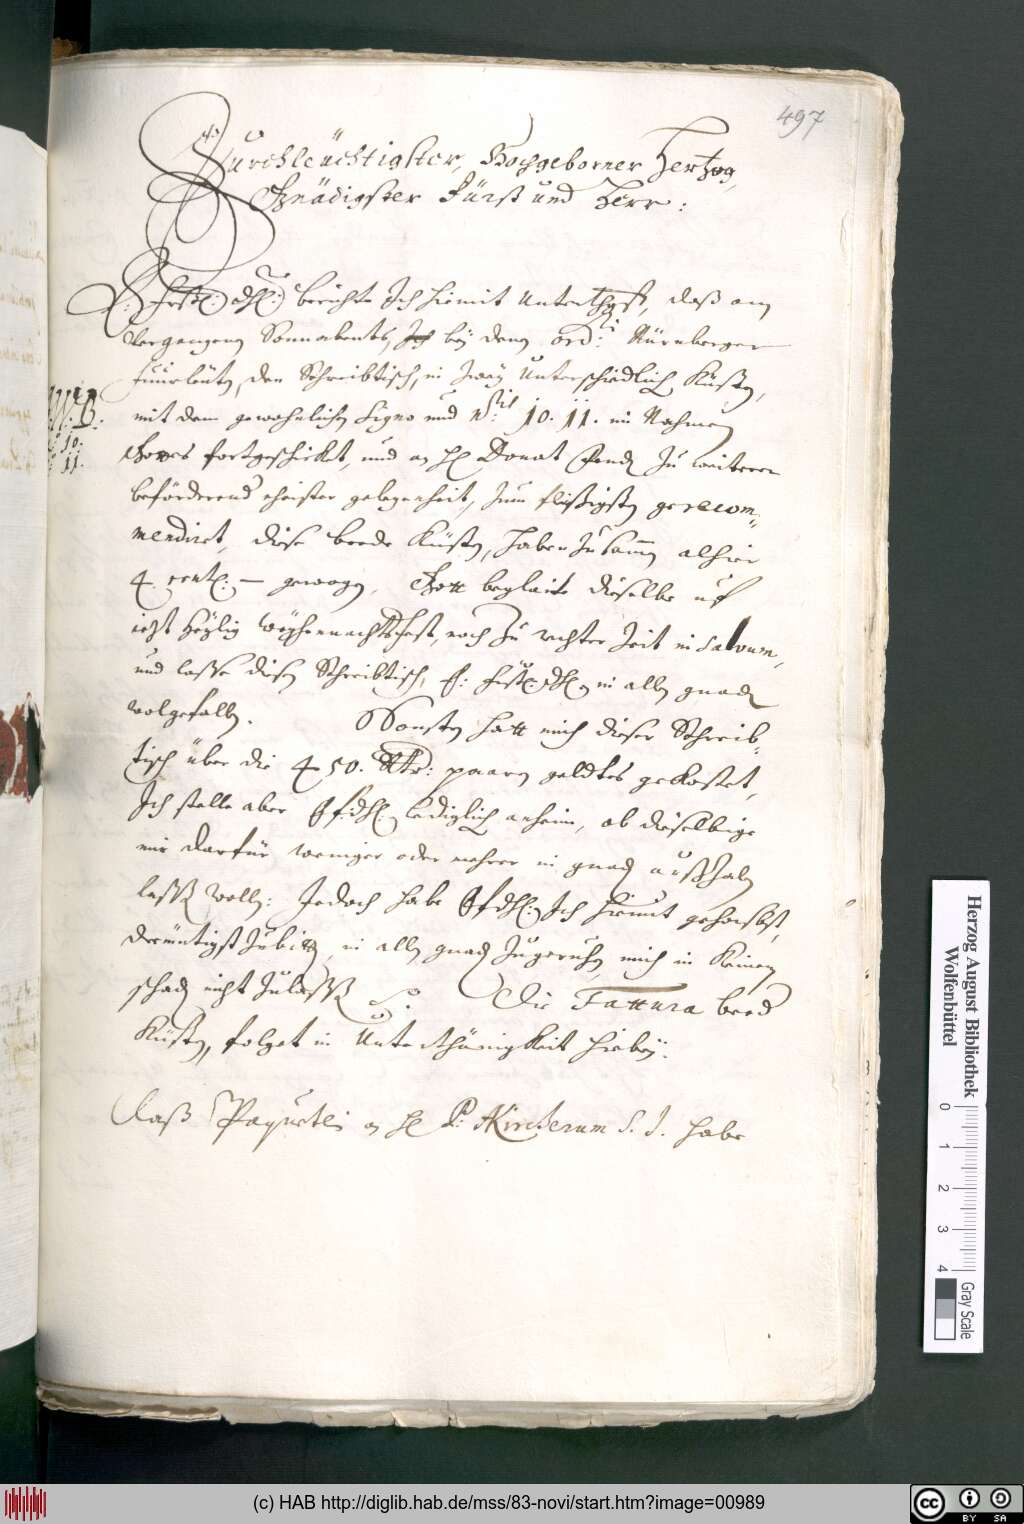 497
Durchleüchtigster, Hochgeborner Hertzog,
Gnädigster Fürst und Herr:
E: frstl: dhl: berichte Ich hiemit Unterthgst, daß am
vergangenen Sonnabents, Ich bey dem ord: Nürnberger
fuurleüten, den Schreibtisch, in zwey Unterschiedlich Küsten,
mit dem gewohnlichen Signo und N: 10. 11. im Nahmen
N: 10.
11.
Gottes fortgeschicket, und an H Donat Fend zu weiterer
beförderend ehister gelegenheit, zum fleißigsten gerecom-
mendiret, diese beede Küsten, haben zusamen alhier
4. centl: — gewogen, Gott beglaite dieselbe uf
iezt heylig Weyhennachtsfest, noch zu rechter Zeit in salvum,
und lasse disen Schreibtisch, E: frstl: dhl in allen gnaden
wolgefallen. Sonsten hatt mich dieser Schreib-
tisch über die 450. Rtr: paaren geldtes gekostet,
Ich stelle aber E f: dhl: lediglich anheim, ob dieselbige
mir darfür weniger oder mehrer in gnaden
lassen wollen: Jedoch habe E f dhl: Ich hiemit gehorsbst,
demütigst zubitten, in allen gnaden zugeruhen, mich in keinen
schaden nicht zulassen. Die Fattura beed
Küsten, folget in Unterthänigkeit hiebey.
Daß Paquetlein an H P: Kircherum S. J. habe
Herzog August Bibliothek
Wolfenbüttel
0 1 2 3 4
Gray Scale
(c) HAB http://diglib.hab.de/mss/83-novi/start.htm?image=00989
cc BY SA